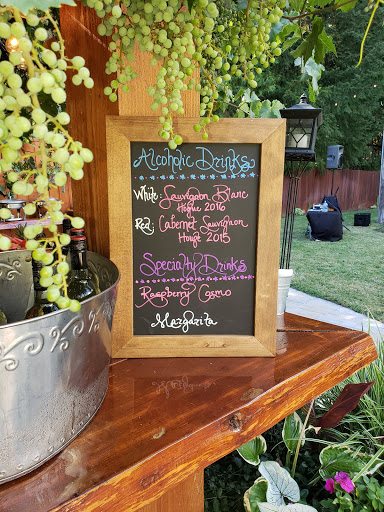 Alcoholic Drinks
White: Sauvignon Blanc
Hogue 2016
Red: Cabernet Sauvignon
Hogue 2015
Specialty Drinks
Raspberry Cosmo
Margarita